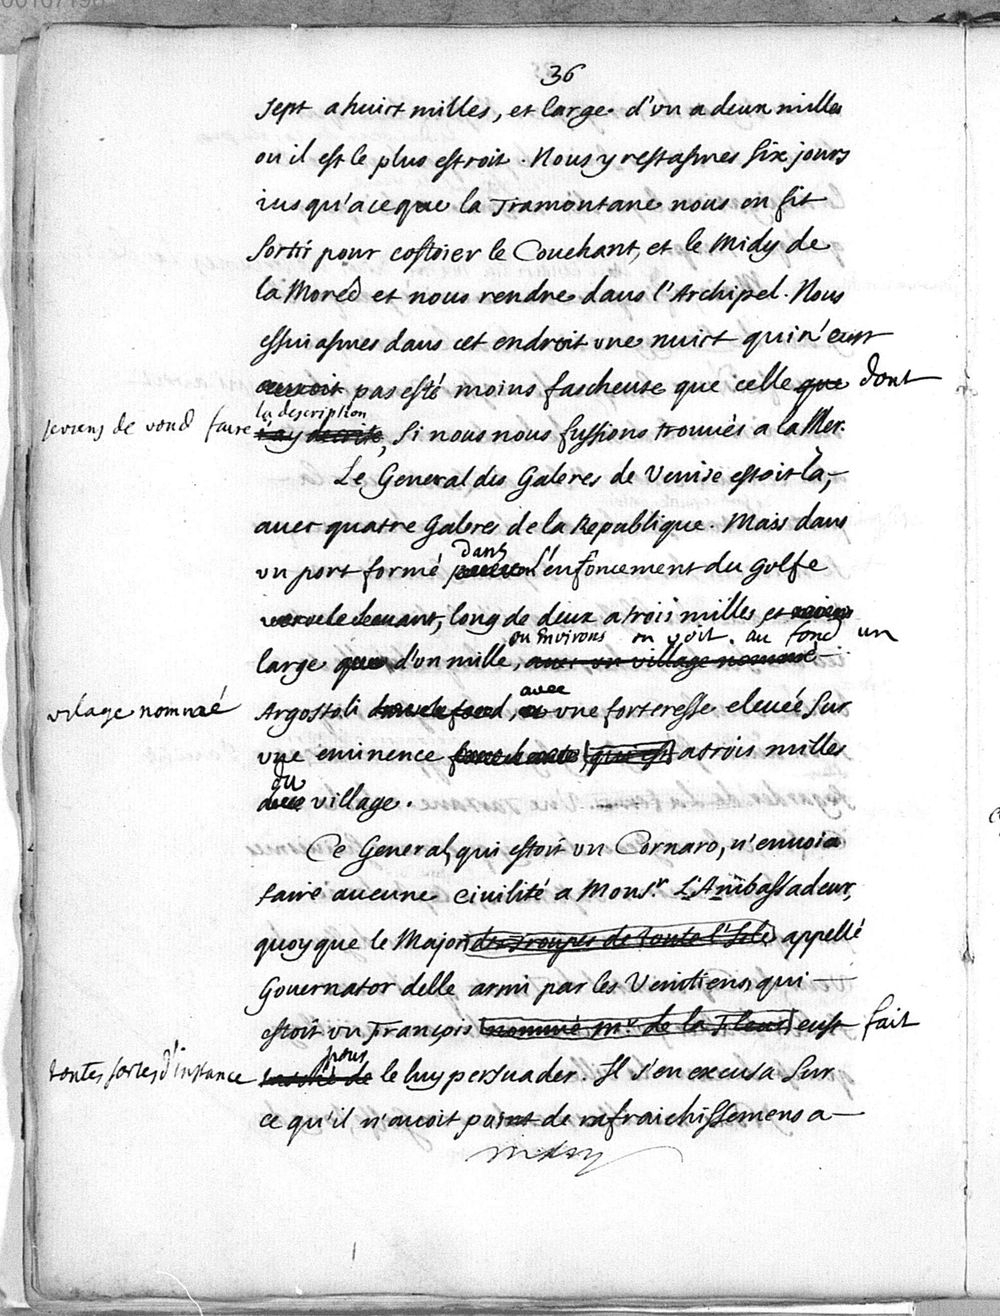 36
sept a huict milles, et large d'vn a deux milles
ou il est le plus estroit. Nous y restasmes six jours
iusqu'a ce que la Tramontane nous en fit
sortir pour costoier le Couchant, et le Midy de
la Moreé et nous rendre dans l'Archipel. Nous
essuiasmes dans cet endroit vne nuict qui n'eust
pas esté moins fascheuse que celle que dont
la description
je viens de vous faire l'ay decrite, si nous nous fussions trouués a la Mer.
Le General des Galeres de Venise estoit la,
auec quatre Galeres de la Republique. Mais dans
dans
vn port formé l'enfoncement du golfe
vers le Leuant, long de deux a trois milles, et
ou environs on voit au fond un
large d'vn mille, auec vn village nommé
vilage nommé Argostoli dans le fond, avec vne forteresse eleuée sur
vne eminence qui est a trois milles
du
village.
Ce General, qui estoit vn Cornaro, n'enuoia
faire aucune ciuilité a Monsr. L'Ambassadeur,
quoy que le Major des Troupes de toute l'Isle appellé
Gouernator delle armi par les Venitiens, qui
estoit vn François nommé Mr. de la Fleur eust fait
pour
toutes sortes d'instance tasché de le luy persuader. Il s'en excusa sur
ce qu'il n'auoit point de rafraichissemens a